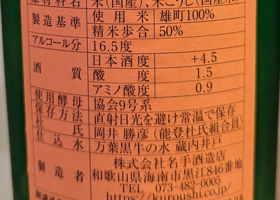 原材料名 米(国産)、米こうじ(国産米)
製造基準 使用米 雄町100%
精米歩合 50%
アルコール分 16.5度
酒質 日本酒度 +4.5
酸度 1.5
アミノ酸度 0.9
使用酵母 協会9号系
保存方法 直射日光を避け常温で保存
杜氏 岡井 勝彦(能登杜氏組合員)
仕込水 万葉黒牛の水 蔵内井戸
製造者 株式会社名手酒造店
和歌山県海南市黒江846番地
TEL 073-482-0005
https://kuroushi.co.jp